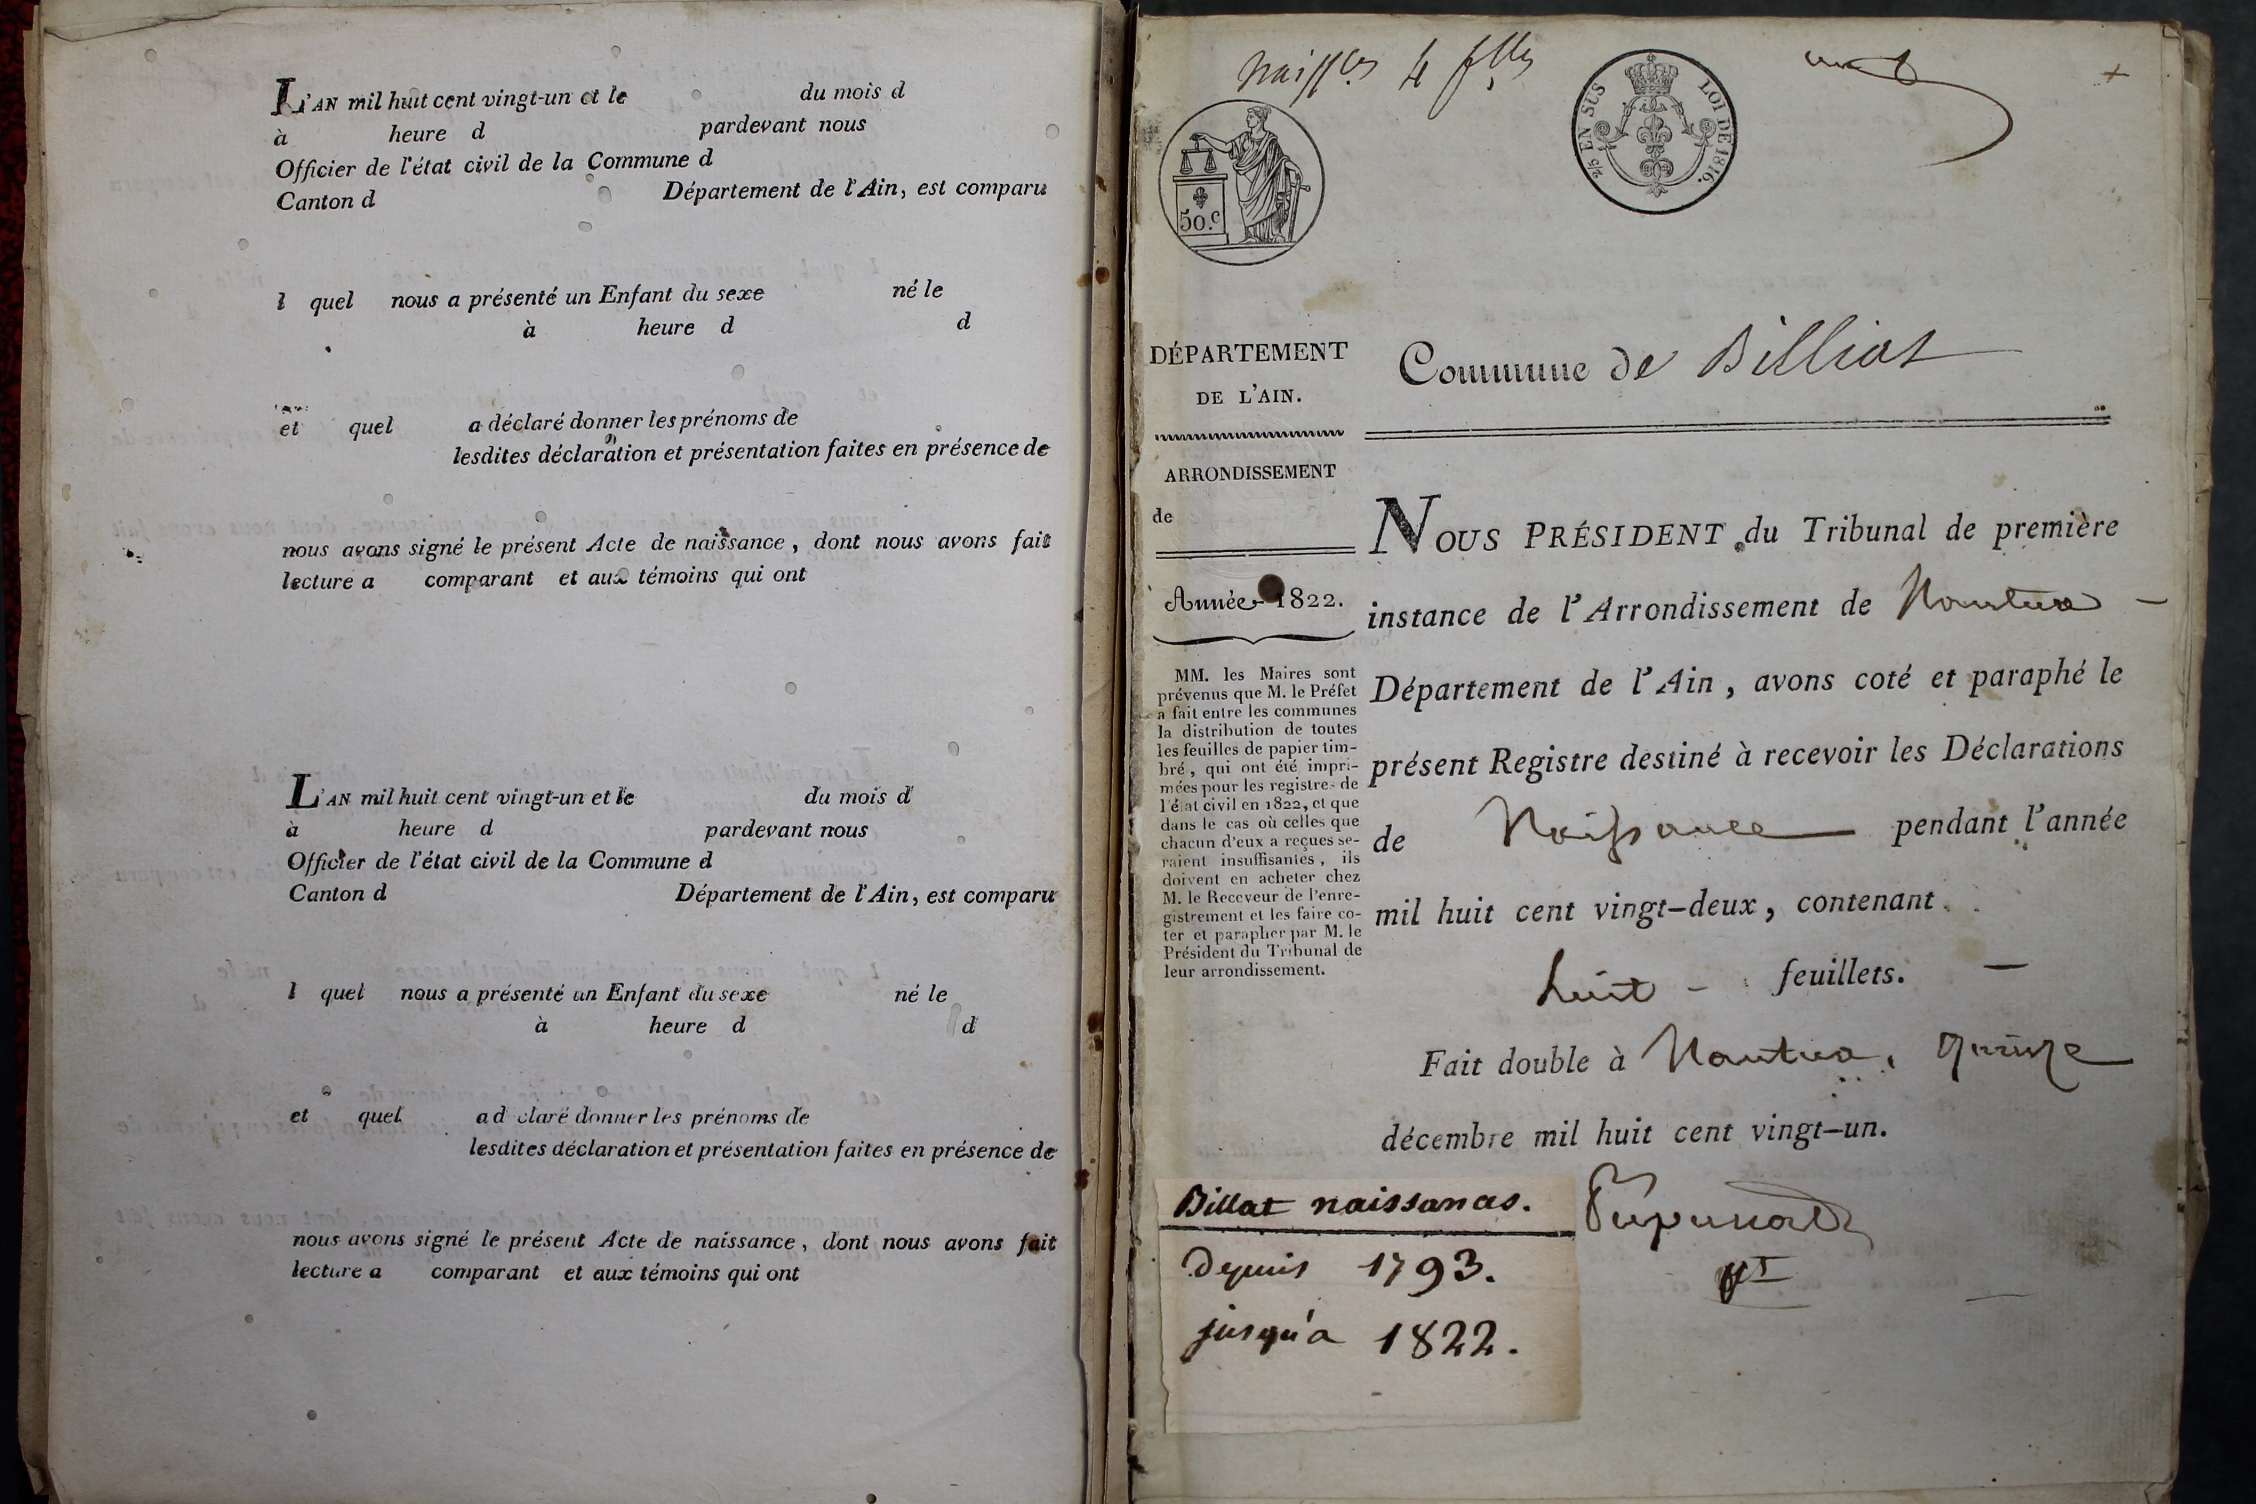 L'AN mil huit cent vingt-un et le du mois d
à heure d pardevant nous
Officier de l'état civil de la Commune d
Canton d Département de l'Ain, est comparu
l quel nous a présenté un Enfant du sexe né le
à heure d d
et quel a déclaré donner les prénoms de
lesdites déclaration et présentation faites en présence de
nous avons signé le présent Acte de naissance, dont nous avons fait
lecture a comparant et aux témoins qui ont
L'AN mil huit cent vingt-un et le du mois d
à heure d pardevant nous
Officier de l'état civil de la Commune d
Canton d Département de l'Ain, est comparu
l quel nous a présenté un Enfant du sexe né le
à heure d d
et quel a d claré donner les prénoms de
lesdites déclaration et présentation faites en présence de
nous avons signé le présent Acte de naissance, dont nous avons fait
lecture a comparant et aux témoins qui ont
4
50.c
EN SUS LOI DE 1816.
DÉPARTEMENT
DE L'AIN.
ARRONDISSEMENT
de
Année 1822.
MM. les Maires sont
prévenus que M. le Préfet
a fait entre les communes
la distribution de toutes
les feuilles de papier tim-
bré, qui ont été impri-
mées pour les registres de
l'état civil en 1822, et que
dans le cas où celles que
chacun d'eux a reçues se-
raient insuffisantes, ils
doivent en acheter chez
M. le Receveur de l'enre-
gistrement et les faire co-
ter et parapher par M. le
Président du Tribunal de
leur arrondissement.
Commune de Billiat
NOUS PRÉSIDENT du Tribunal de première
instance de l'Arrondissement de Nantua
Département de l'Ain, avons coté et paraphé le
présent Registre destiné à recevoir les Déclarations
de Naissance pendant l'année
mil huit cent vingt-deux, contenant
huit feuillets.
Fait double à Nantua, quinze
décembre mil huit cent vingt-un.
Billat naissances.
Depuis 1793.
jusqu'a 1822.